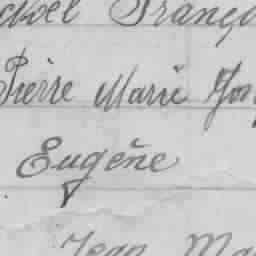 Noël Franço
Pierre Marie Jos
Eugène
Jean Ma